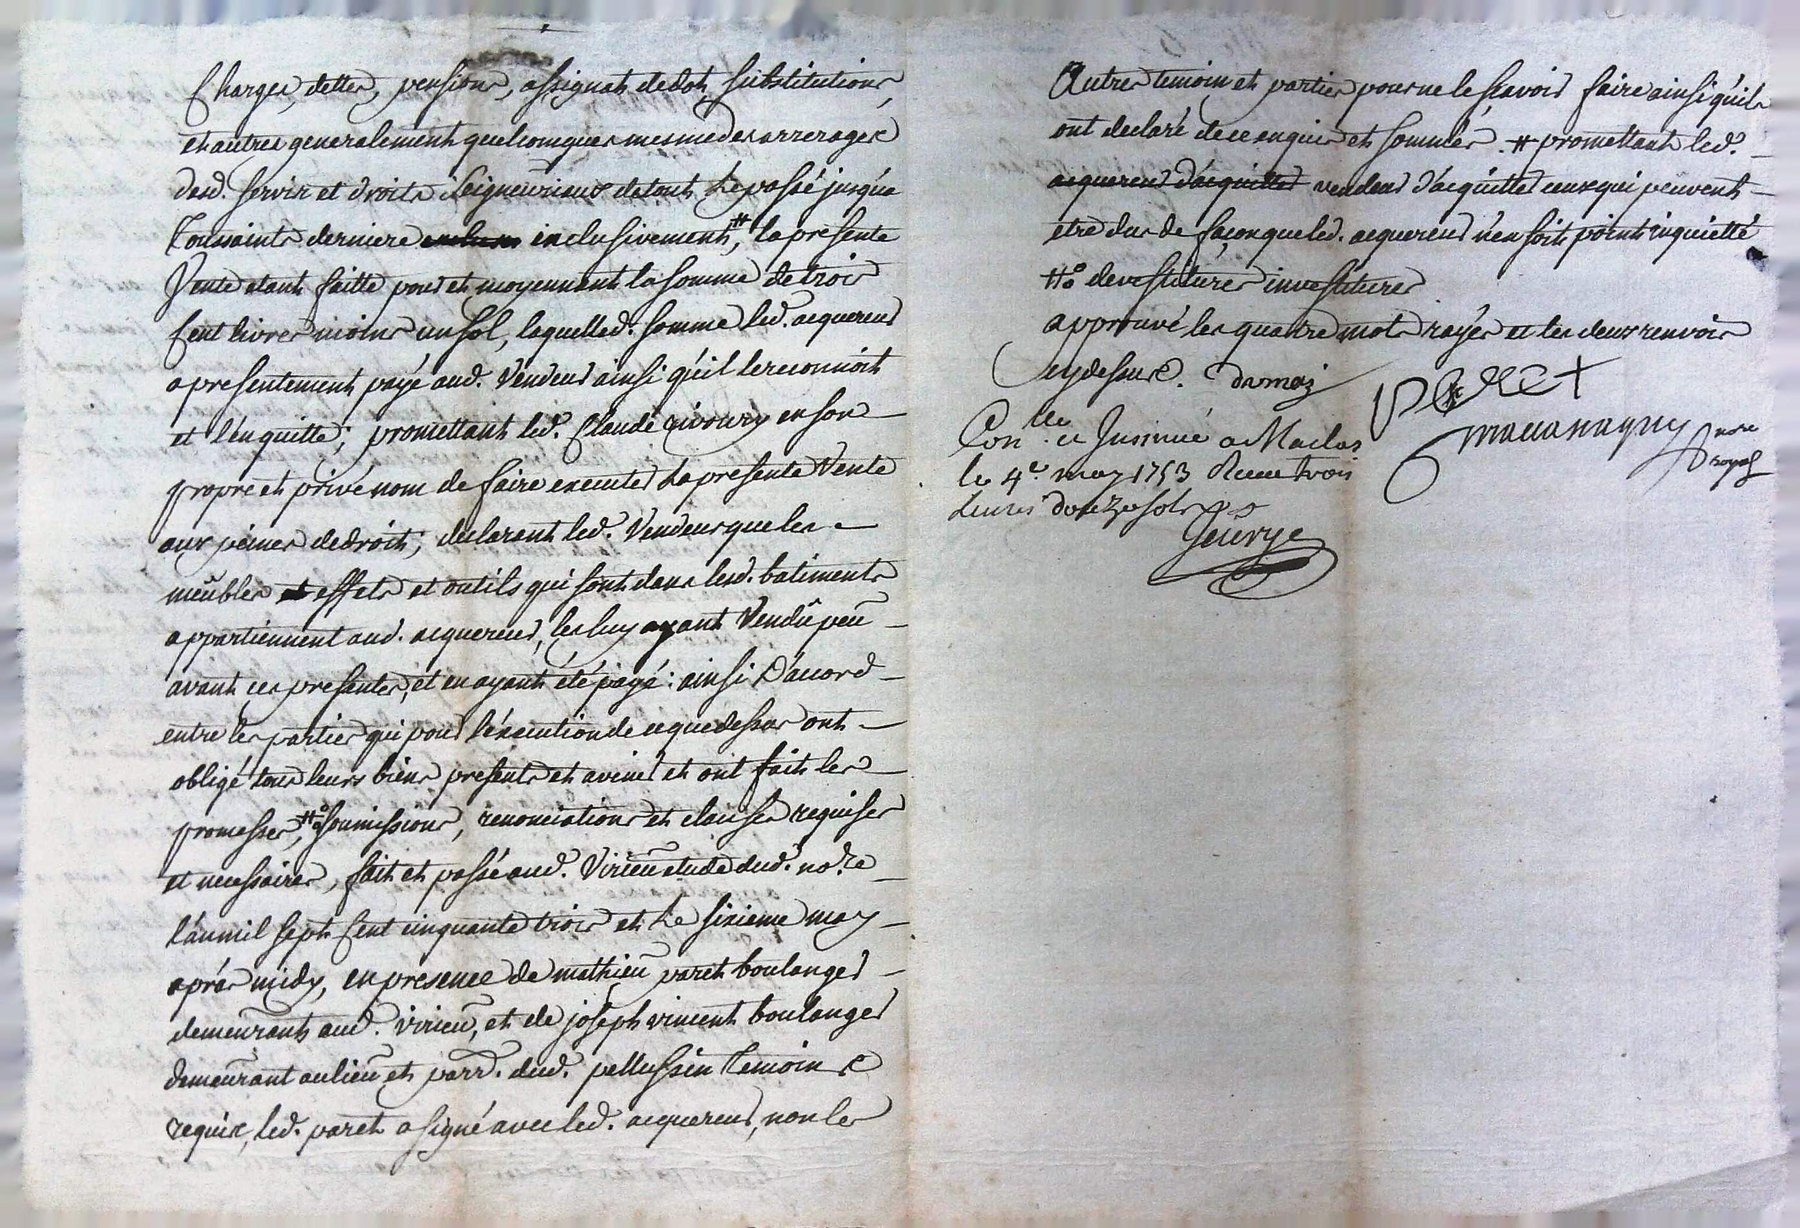 Charges, dettes, pensions, assignats de dot, substitutions,
et autres generalement quelconques mesme des arrerages
desd. servis et droits seigneuriaux de tout le passé jusqu'a
Toussaints derniere inclusivement, # la presente
Vente etant faitte pour et moyennent la somme de trois
cent livres moins un sol, laquelled. somme led. acquereur
a presentement payé aud. Vendeur ainsi qu'il le reconnoit
et l'en quitte; promettant led. Claude en son
propre et privé nom de faire executer la presente Vente
aux peines de droit; declarant led. Vendeur que les
meubles effets et outils qui sont dans lesd. batiments
appartiennent aud. acquereur, les luy ayant Vendû peu
avant ces presentes, et en ayant été payé: ainsi d'accord
entre les parties qui pour l'execution de ce que dessus ont
obligé tous leurs biens presents et avenir et ont fait les
promesses, #o soumissions, renonciations et clauses requises
et necessaires, fait et passé aud. Virieu etude dud. no.re
l'an mil sept cent cinquante trois et le sixieme may
aprés midy, en presence de mathieu paret boulanger
demeurant aud. Virieu, et de joseph vincent boulanger
demeurant au lieu et parr. dud. pellussin temoins
requis, led. paret a signé avec led. acquereur, non les
Autres temoin et parties pour ne le sçavoir faire ainsi qu'ils
ont declaré de ce enquis et sommés. # promettant led.
acquereur d'acquitter vendeur d'acquitter ceux qui peuvent
etre dus de façon que led. acquereur n'en soit point inquietté
#o devestitures investitures
approuvé les quatre mots rayés et les deux renvois
cy dessus. dumas
paret
Con.lle et Insinué a Maclas
le 4e. may 1753 Receu trois
Livres douze sols
nore
royal